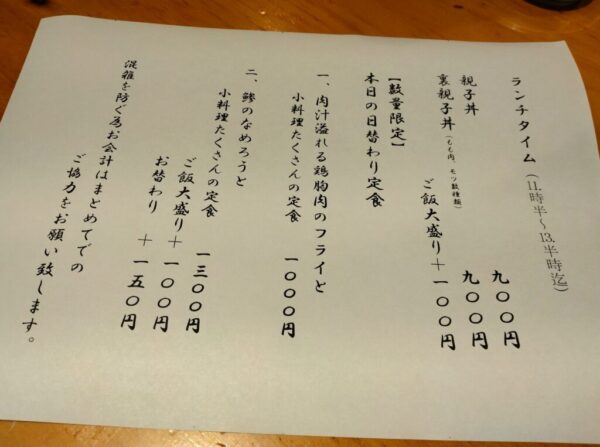 ランチタイム（11時半〜13半時迄）
親子丼　九〇〇円
裏親子丼（もも肉、モツ数種類）　九〇〇円
ご飯大盛り＋一〇〇円
【数量限定】
本日の日替わり定食
一、肉汁溢れる鶏胸肉のフライと
小料理たくさんの定食　一〇〇〇円
二、鯵のなめろうと
小料理たくさんの定食　一三〇〇円
ご飯大盛り＋一〇〇円
お替わり　＋一五〇円
混雑を防ぐ為お会計はまとめてでの
ご協力をお願い致します。